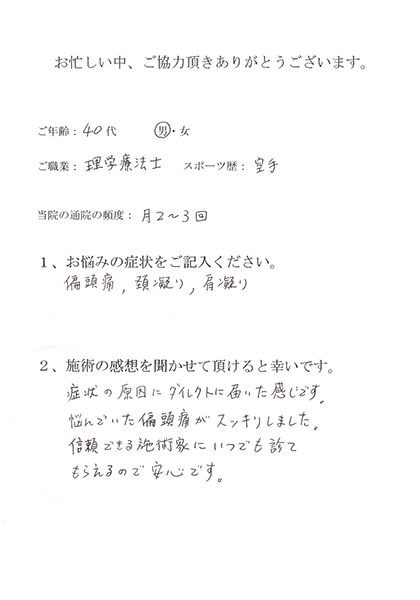 お忙しい中、ご協力頂きありがとうございます。
ご年齢：40代　男・女
ご職業：理学療法士　スポーツ歴：空手
当院の通院の頻度：月2～3回
１、お悩みの症状をご記入ください。
偏頭痛，頚凝り，肩凝り
２、施術の感想を聞かせて頂けると幸いです。
症状の原因にダイレクトに届いた感じです。
悩んでいた偏頭痛がスッキリしました。
信頼できる施術家にいつでも診て
もらえるので安心です。